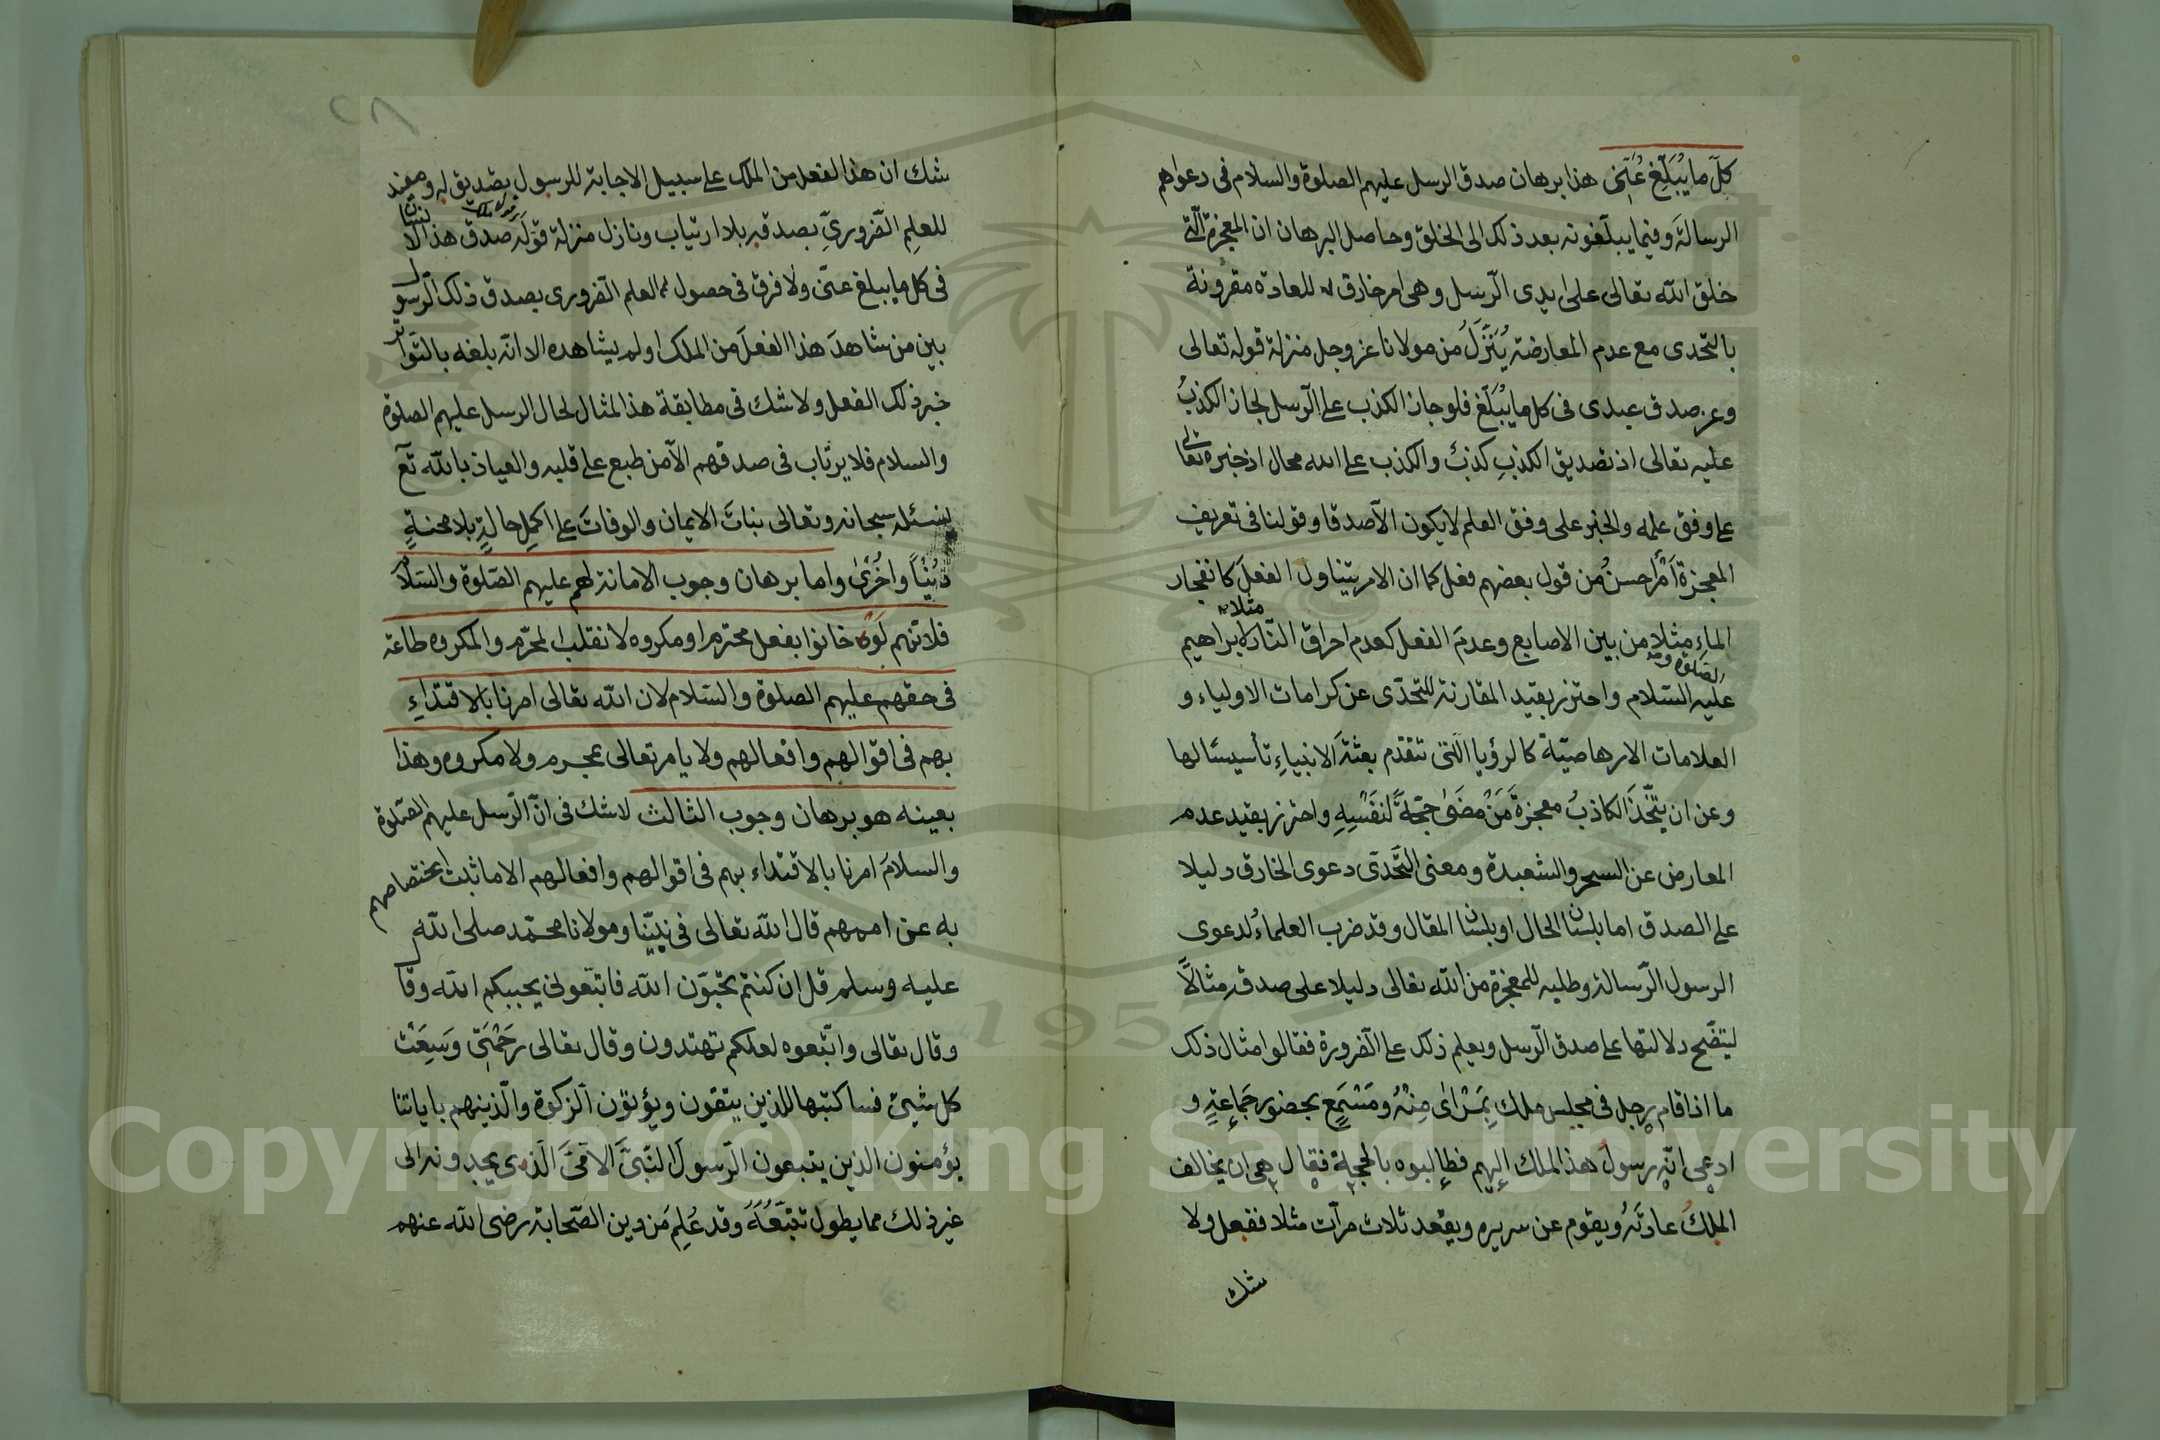 كلّ ما يُبَلِّغ عَنّى هذا برهان صدق الرسل عليهم الصلوة والسلام فى دعواهم
الرسالة وفيما يبلّغونه بعد ذلك الى الخلق وحاصل البرهان ان المعجزة الّتى
خلق الله تعالى على ايدى الرّسل وهى امر خارق للعادة مقرونة
بالتحدى مع عدم المعارضة يُتَنَزَّلُ من مولانا عز وجل منزلة قوله تعالى
وعز صدق عبدى فى كل ما يُبَلّغ فلو جاز الكذب على الرّسل لجاز الكذبُ
عليه تعالى اذ تصديق الكذبِ كذبٌ والكذب على الله محال اذ خبره تعالى
على وفق علمه والخبر على وفق العلم لا يكون الّا صدقا وقولنا فى تعريف
المعجزة اَمْرٌ احسنُ من قول بعضهم فعل كما ان الامر يتناول الفعل كانفجار
مثلا
الماء مثلا من بين الاصابع وعدمَ الفعل كعدم احراق النّار لابراهيم
الصلوة و
عليه السّلام واحترز بقيد المقارنة للتحدّى عن كرامات الاولياء و
العلامات الارهاصيّة كالرؤيا الّتى تتقدم بعثةَ الانبياءِ تأسيسًا لها
وعن ان يتّخذَ الكاذبُ معجزةَ مَنْ مضَىٰ حجّةً لنفسِهِ واحترز بقيد عدم
المعارض عن السحر والشعبدة ومعنى التّحدّى دعوى الخارق دليلا
على الصدق اما بلسان الحال او بلسان المقال وقد ضرب العلماءُ لدعوى
الرسول الرّسالة وطلبه للمعجزة من الله تعالى دليلا على صدقه مثالًا
ليتضّح دلالتها على صدق الرّسل ويعلم ذلك على الضّرورة فقالوا مثال ذلك
ما اذا قام رجل فى مجلس ملك بِمَرْاىٰ مِنْهُ ومَسْمَعٍ بحضور جَماعةٍ و
ادعى انّه رسولُ هذا الملك اليهم فطالبوه بالحجة فقال هى ان يخالف
الملكُ عادتَهُ ويقوم عن سريره ويقعد ثلاث مرآت مثلا ففعل ولا
شك
شك ان هذا الفعل من الملك على سبيل الاجابة للرسول تصديق له ومفيد
للعلمِ الضّرورىّ بصدقه بلا ارتياب ونازل منزلة قولَه صدق هذا الانسان
فى كل ما يبلغ عنّى ولا فرق فى حصول العلم الضّرورى بصدق ذلك الرّسول
بين من شاهدَ هذا الفعلَ من الملك او لم يشاهده الا انّه بلغه بالتّواتر
خبر ذلك الفعل ولا شك فى مطابقة هذا المثال لحال الرسل عليهم الصلوة
والسلام فلا يرتاب فى صدقهم الّا من طبع على قلبه والعياذ بالله تع
نسئله سبحانه وتعالى ثباتَ الايمان والوفاتَ على اكملِ حالةٍ بلا محنةٍ
دُنْيًا واُخْرَىٰ واما برهان وجوب الامانة لهم عليهم الصّلوة والسّلام
فلانهم لو خانوا بفعل محترم او مكروه لانقلب المحرّم والمكروه طاعة
فى حقهم عليهم الصلوة والسّلام لان الله تعالى امرنا بالاقتداءِ
بهم فى اقوالهم وافعالهم ولا يامر تعالى بمحرم ولا مكروه وهذا
بعينه هو برهان وجوب الثالث لا شك فى انّ الرّسل عليهم الصّلوة
والسلامَ امرنا بالاقتداء بهم فى اقوالهم وافعالهم الا ما ثبت اختصاصهم
به عن اممهم قال الله تعالى فى نبيّنا ومولانا محمّد صلى الله
عليه وسلم قل ان كنتم تحبّون الله فاتبّعونى يحببكم الله وقال
وقال تعالى واتّبعوه لعلكم تهتدون وقال تعالى رَحْمَتِى وَسِعَتْ
كل شيئ فساكتبها للذين يتقون ويؤتون الزكوة والّذينهم باياتنا
يؤمنون الذين يتبعون الرّسولَ النّبىَّ الامّىَّ الّذى يجدونه الى
غير ذلك مما يطول تتبّعُهُ وقد عُلِمَ من دين الصّحابة رضى الله عنهم
1957
Copyright © King Saud University